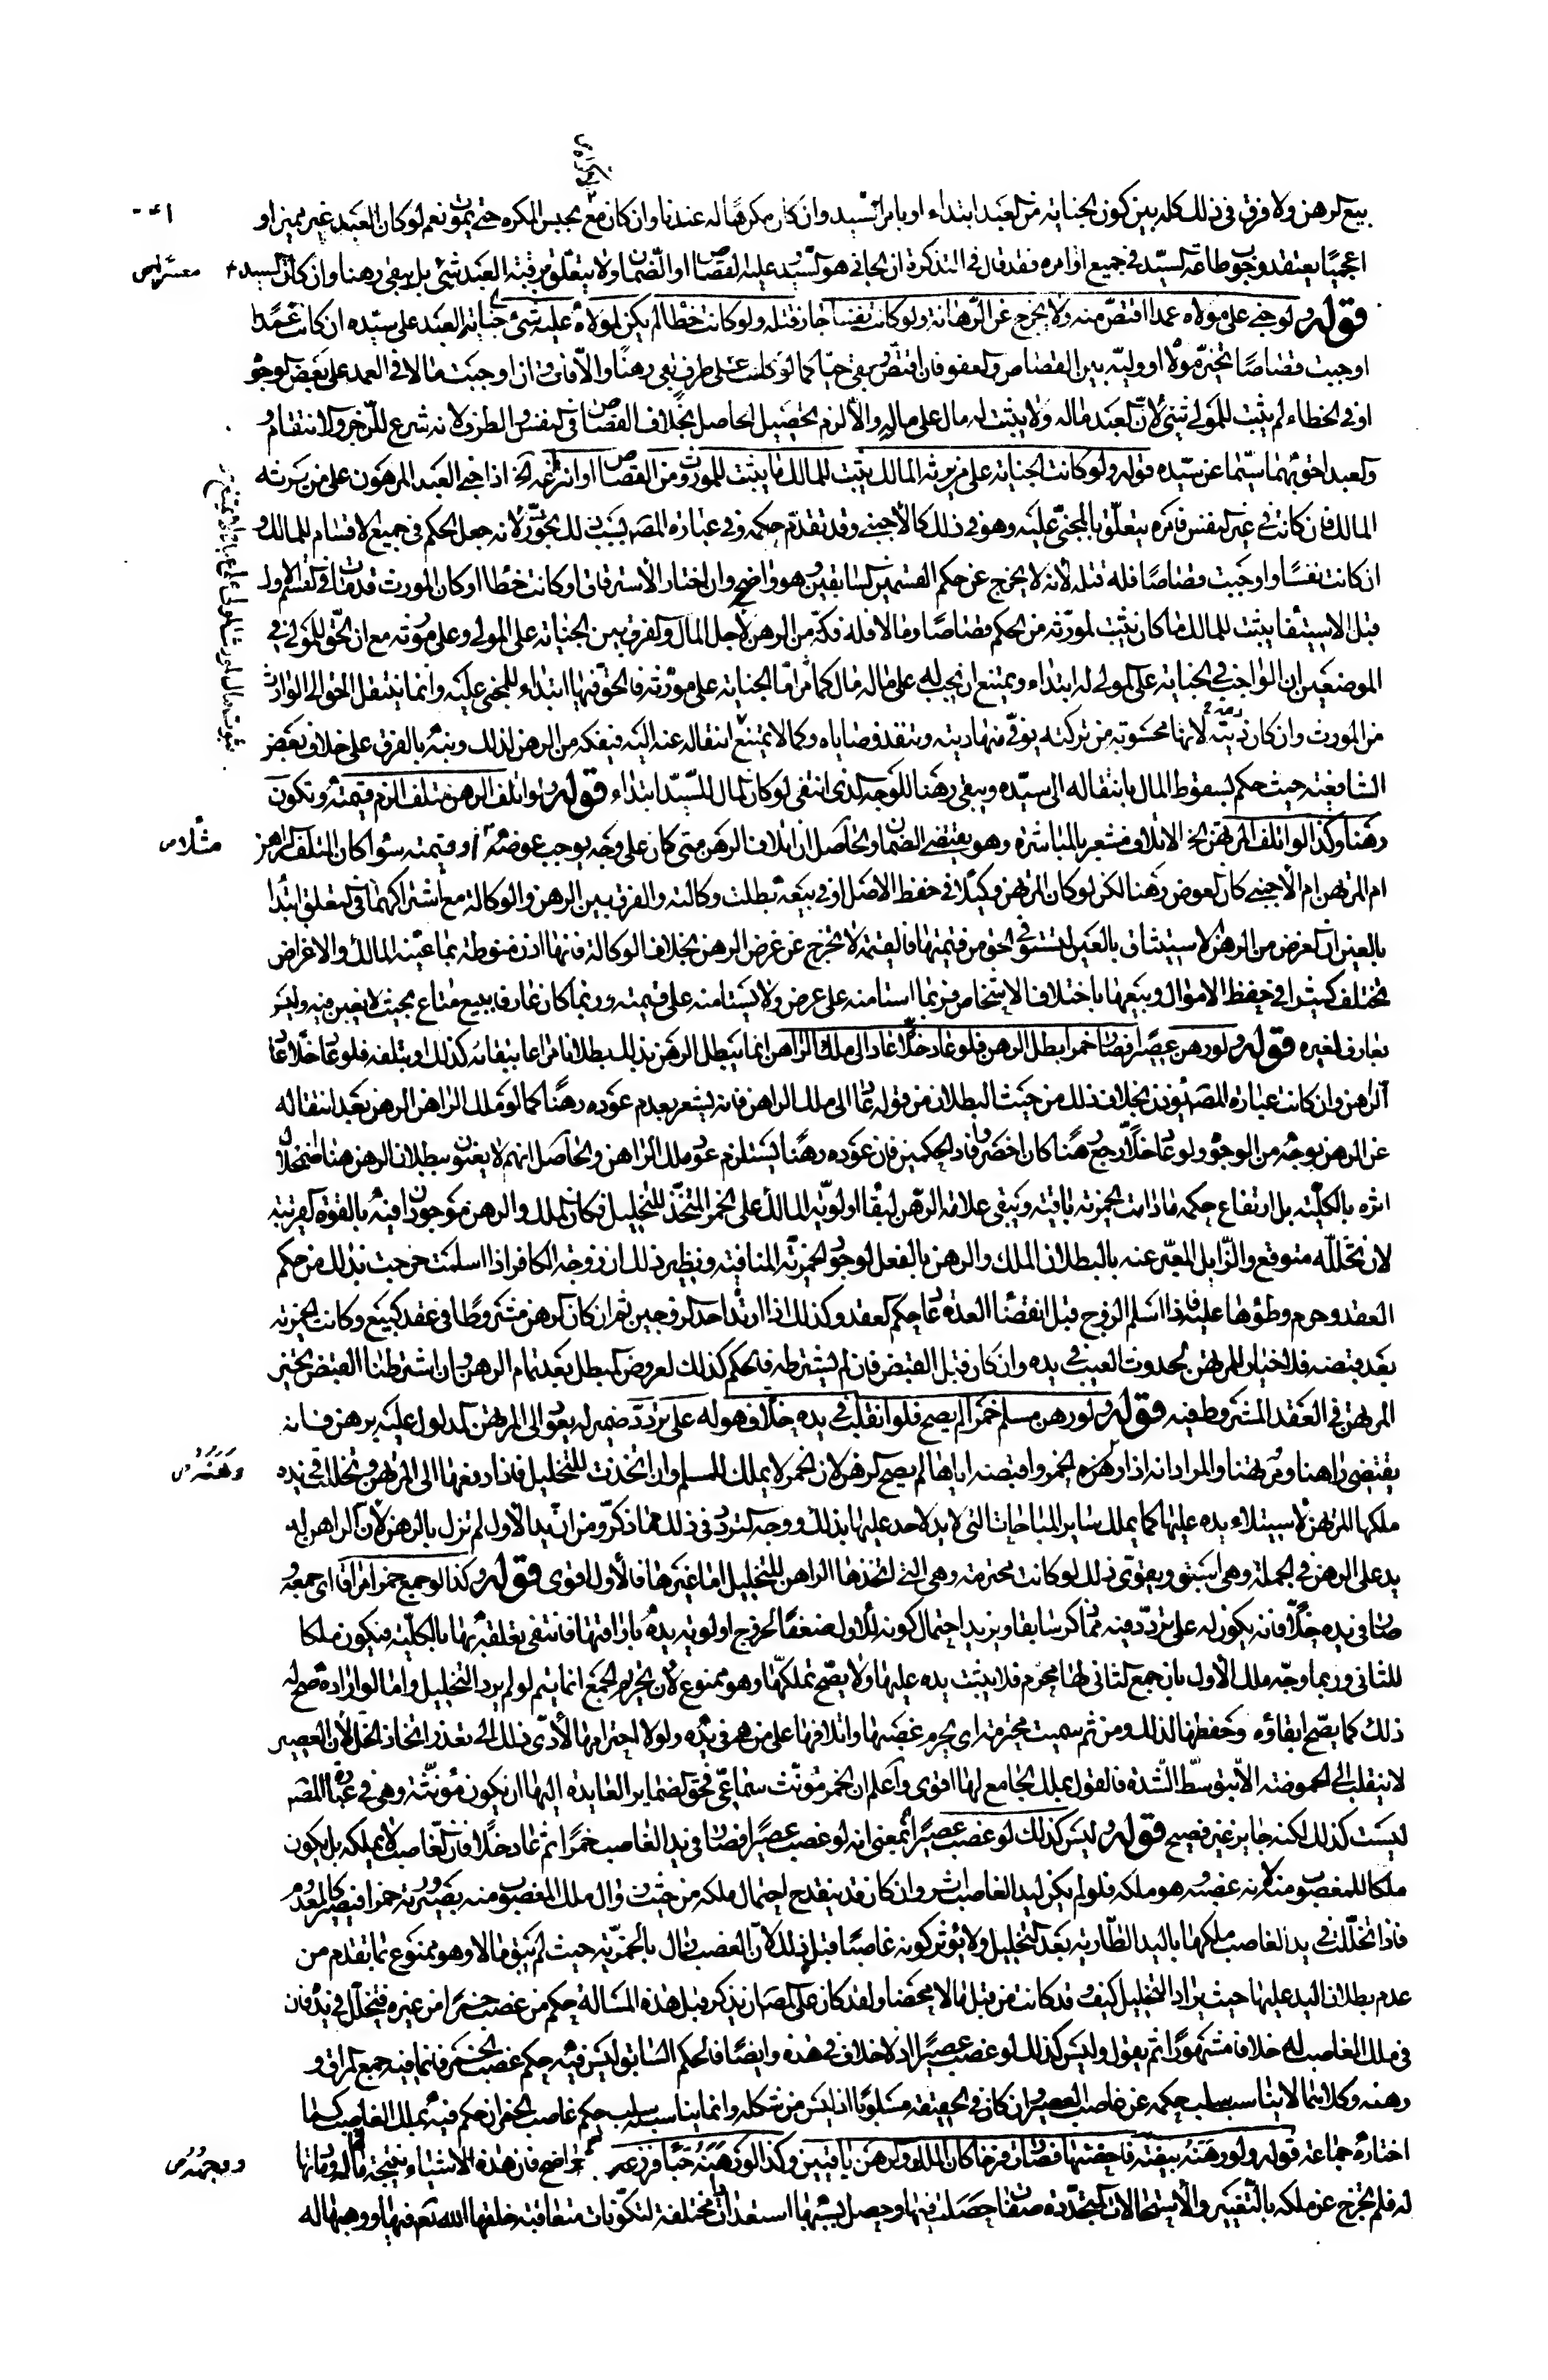 بيع الرهن ولا فرق في ذلك كله بين كون الجناية من العبد ابتداء او بامر السيد وان كان مكرها له عندنا وان كان مع يحبس المكره حتى يموت نعم لو كان العبد غير مميز او
اعجميا يعتقد وجوب طاعة السيد في جميع اوامره فقد قال في التذكرة ان الجاني هو السيد وعليه القصاص او الضمان ولا يتعلق برقبة العبد شئ بل يبقى رهنا وان كان السيد معسرا
قوله ولو جنى على مولاه عمدا اقتص منه ولا يخرج عن الرهانة ولو كانت نفسا جاز قتله ولو كانت خطأ لم يكن لمولاه عليه شئ جناية العبد على سيده ان كانت عمدا
اوجبت قصاصا تخير مولاه او وليه بين القصاص والعفو فان اقتص وبقي حيا كما لو كانت على طرف بقي رهنا والا فات وان اوجبت مالا في العمد على بعض الوجوه
او في الخطاء لم يثبت للمولى شئ لان العبد ماله ولا يثبت له مال على ماله والا لزم تحصيل الحاصل بخلاف القصاص في النفس والطرف لانه شرع للزجر والانتقام و
العبد احق بهما سيما عن سيده قوله ولو كانت الجناية على من يرثه المالك يثبت للمالك ما يثبت للموروث من القصاص او انتزاعه الخ اذا جنى العبد المرهون على من يرثه
المالك فان كانت في غير النفس فامره يتعلق بالمجني عليه وهو في ذلك كالاجنبي وقد تقدم حكمه وفي عبارة المصـ بسبب ذلك تجوز لانه جعل الحكم في جميع الاقسام للمالك و
ان كانت نفسا واوجبت قصاصا فله قتله لانه لا يخرج عن حكم القسمين السابقين وهو واضح وان اختار الاسترقاق او كانت خطأ او كان المورث قد مات في القسم الاول
قبل الاستيفاء يثبت للمالك ما كان يثبت لمورثه من الحكم قصاصا ومالا فله فكه من الرهن لاجل المال والفرق بين الجناية على المولى وعلى مورثه مع ان الحق للمولى في
الموضعين ان الواجب في الجناية على المولى له ابتداء ويمتنع ان يجب له على ماله مال كما مر اما الجناية على مورثه فالحق فيها ابتداء للمجني عليه وانما ينتقل الحق الى الوارث
من المورث وان كان دية لانها محسوبة من تركته يوفى منها دينه وينفذ وصاياه وكما لا يمتنع انتقاله عنه اليه فيفكه من الرهن لذلك ونبه بالفرق على خلاف بعض
الشافعية حيث حكم بسقوط المال بانتقاله الى سيده ويبقى رهنا للوجه الذي انتفى لو كان المال للسيد ابتداء قوله ولو اتلف الرهن متلف الزم قيمته وتكون
رهنا وكذا لو اتلفه المرتهن الخ الاتلاف مشعر بالمباشرة وهو يقتضي الضمان والحاصل ان اتلاف الرهن متى كان على وجه يوجب عوضه مثلا او قيمته سواء كان المتلف الراهن
ام المرتهن ام الاجنبي كان العوض رهنا لكن لو كان المرتهن وكيلا في حفظ الاصل او في بيعه بطلت وكالته والفرق بين الرهن والوكالة مع اشتراكهما في التعلق ابتداء
بالعين ان الغرض من الرهن الاستيثاق بالعين ليستوفي الحق من قيمتها فالقيمة لا تخرج عن غرض الرهن بخلاف الوكالة فانها اذن منوطة بما عينه المالك والاغراض
تختلف كثيرا في حفظ الاموال وبيعها باختلاف الاشخاص فربما استامنه على عرض ولا يستامنه على قيمته وربما كان عارفا ببيع متاع بحيث لا يغبن فيه وليس
بعارف لغيره قوله ولو رهن عصيرا فصار خمرا بطل الرهن فلو عاد خلا عاد الى ملك الراهن انما يبطل الرهن بذلك بطلانا مراعا ببقائه كذلك او بتلفه فلو عاد خلا عاد
الرهن وان كانت عبارة المصـ تؤذن بخلاف ذلك من حيث البطلان من قوله عاد الى ملك الراهن فانه يشعر بعدم عوده رهنا كما لو ملك الراهن الرهن بعد انتقاله
عن الرهن بوجه من الوجوه ولو عاد خلا رجع رهنا كان اخصر وافاد الحكمين فان عوده رهنا يستلزم عود ملك الراهن والحاصل انهم لا يعنون ببطلان الرهن هنا اضمحلال
اثره بالكلية بل ارتفاع حكمه ما دامت الخمرية باقية وتبقى علاقة الرهن لبقاء اولوية المالك على الخمر المتخذ للتخليل فكان الملك والرهن موجودان فيه بالقوة القريبة
لان تخلله متوقع والزايل المعبر عنه بالبطلان الملك والرهن بالفعل لوجود الخمرية المنافية ونظير ذلك ان زوجة الكافر اذا اسلمت خرجت بذلك من حكم
العقد وحرم وطؤها عليه فاذا اسلم الزوج قبل انقضاء العدة عاد حكم العقد وكذلك اذا ارتد احد الزوجين ثم ان كان الرهن مشروطا في عقد كبيع وكانت الخمرية
بعد قبضه فلا خيار للمرتهن لحدوث العيب في يده وان كان قبل القبض فان لم نشترطه فالحكم كذلك لعروض المبطل بعد تمام الرهن وان اشترطنا القبض تخير
المرتهن في العقد المشروط فيه قوله ولو رهن مسلم خمرا لم يصح فلو انقلبت في يده خلا فهو له على تردد ضمير له يعود الى المرتهن المدلول عليه برهن فانه
يقتضي راهنا ومرتهنا والمراد انه اذا رهنه الخمر واقبضه اياها لم يصح الرهن لان الخمر لا يملك للمسلم وان اتخذت للتخليل فاذا دفعها الى المرتهن وتخللت في يده
ملكها المرتهن لاستيلاء يده عليها كما يملك ساير المباحات التي لا يد لاحد عليها بذلك ووجه التردد في ذلك مما ذكر ومن ان يد الاول لم تزل بالرهن لان الراهن له
يد على الرهن في الجملة وهي اسبق ويقوى ذلك لو كانت محترمة وهي التي اتخذها الراهن للتخليل اما غيرها فالاول اقوى قوله وكذا لو جمع خمرا مراقا اي جمعه و
صار في يده خلا فانه يكون له على تردد فيه مما ذكر سابقا ويزيد احتمال كونه للاول ضعفا لخروج اولوية يده باراقتها فانتفى تعلقه بها بالكلية فيكون ملكا
للثاني وربما وجه ملك الاول بان جمع الثاني لها محرم فلا يثبت يده عليها ولا يصح تملكها وهو ممنوع لان تحريم الجمع انما يتم لو لم يرد التخليل واما لو اراده صح له
ذلك كما يصح ابقاؤه وحفظها لذلك ومن ثم سميت محترمة اي يحرم غصبها واتلافها على من هي في يده ولولا احترامها لادى ذلك الى تعذر اتخاذ الخل لان العصير
لا ينقلب الى الحموضة الا بتوسط الشدة فالقول بملك الجامع لها اقوى واعلم ان الخمر مؤنث سماعي فحق الضماير العايدة اليها ان يكون مؤنثة وهي في عبارة المصـ
ليست كذلك لكنه جايز غير فصيح قوله وليس كذلك لو غصب عصيرا بمعنى انه لو غصب عصيرا فصار في يد الغاصب خمرا ثم عاد خلا فان الغاصب لا يملكه بل يكون
ملكا للمغصوب منه لانه غصبه وهو ملكه فلو لم يكن ليد الغاصب اثر وان كان قد ينقدح احتمال ملكه من حيث زوال ملك المغصوب منه بصيرورته خمرا فيصير كالمعدوم
فاذا تخللت في يد الغاصب ملكها باليد الطارية بعد التخليل ولا يؤثر كونه غاصبا قبل ذلك لان الغصب زال بالخمرية حيث لم يبق مالا وهو ممنوع بما تقدم من
عدم بطلان اليد عليها حيث يراد التخليل كيف وقد كانت من قبل مالا محضا ولقد كان على المصـ ان يذكر قبل هذه المسالة حكم من غصب خمرا من غيره فتخلل في يده فان
في ملك الغاصب له خلافا مشهورا ثم يقول وليس كذلك لو غصب عصيرا اذ لا خلاف في هذه وايضا فالحكم السابق ليس فيه حكم غصب الخمر وانما فيه جمع المراق و
رهنه وكلاهما لا يناسب سلب حكمه عن غاصب العصير وان كان في الحقيقة مسلوبا اذ ليس من شكله وانما يناسب سلب حكم غاصب الخمر ان حكم فيه بملك الغاصب كما
اختاره جماعة قوله ولو رهنه بيضة فاحضنها فصارت فرخا كان الملك والرهن باقيين وكذا لو رهنه حبا فزرعه واضح فان هذه الاشياء نتيجة ماله ومادتها
له فلم يخرج عن ملكه بالتغيير والاستحالات المتجددة صفات حصلت فيها وحصل بسببها استعدادات مختلفة لتكونات متعاقبة خلقها الله تعـ فيها ووهبها له